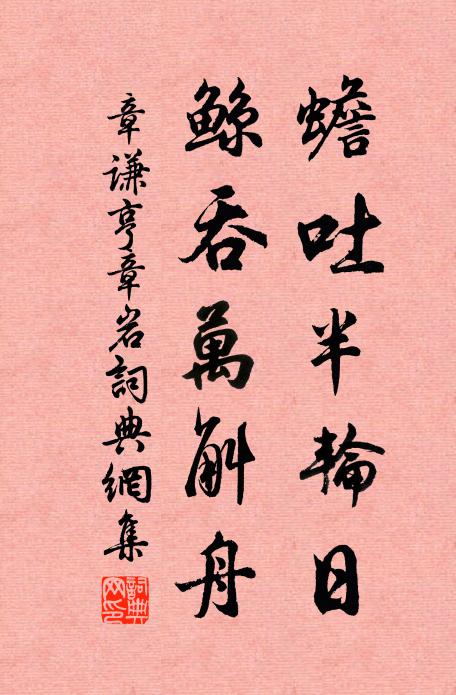 蟾吐半輪日
鯨吞萬斛舟
章謙亨章岩詞典網集
詞典網印